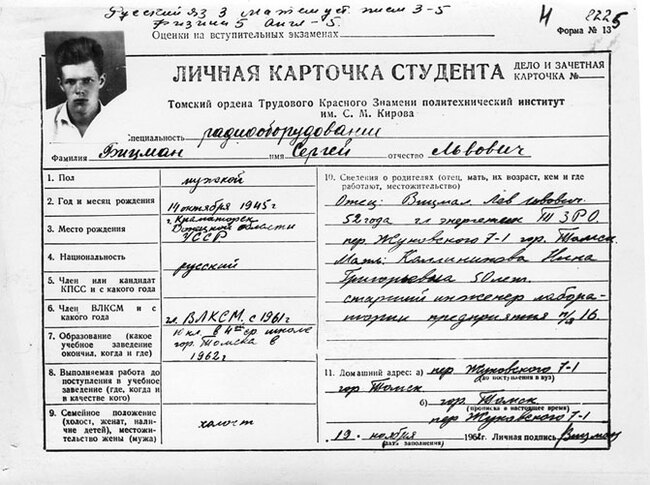 Русский яз 3 матем уст. письм 3-5
физика 5 Англ-5
Оценки на вступительных экзаменах
4
8225
Форма № 13
ЛИЧНАЯ КАРТОЧКА СТУДЕНТА
ДЕЛО И ЗАЧЕТНАЯ
КАРТОЧКА №
Томский ордена Трудового Красного Знамени политехнический институт
им. С. М. Кирова
Специальность радиооборудовании
Фамилия Вицман имя Сергей отчество Львович
1. Пол
мужской
2. Год и месяц рождения
14 октября 1945 г
3. Место рождения
г. Краматорск
Донецкой области
УССР
4. Национальность
русский
5. Член или кандидат
КПСС и с какого года
6. Член ВЛКСМ и с
какого года
чл. ВЛКСМ. с 1961 г
7. Образование (какое
учебное заведение
окончил, когда и где)
10 кл. в 4ой ср школе
гор. Томска в
1962 г
8. Выполняемая работа до
поступления в учебное
заведение (где, когда и
в качестве кого)
9. Семейное положение
(холост, женат, наличие
детей), местожительство
жены (мужа)
холост
10. Сведения о родителях (отец, мать, их возраст, кем и где
работают, местожительство)
Отец: Вицман Лев
52 года гл энергетик ТЭРО
пер Жуковского 7-1 гор. Томск.
Мать: Калинникова Нина
Григорьевна 50 лет.
старший инженер лабора-
тории предприятия п/я 16.
11. Домашний адрес: а) пер Жуковского 7-1
(до поступления в вуз)
гор Томск
б) гор. Томск
(прописка в настоящее время)
пер Жуковского 7-1
19. ноября 1962 г. Личная подпись Вицман
(дата заполнения)